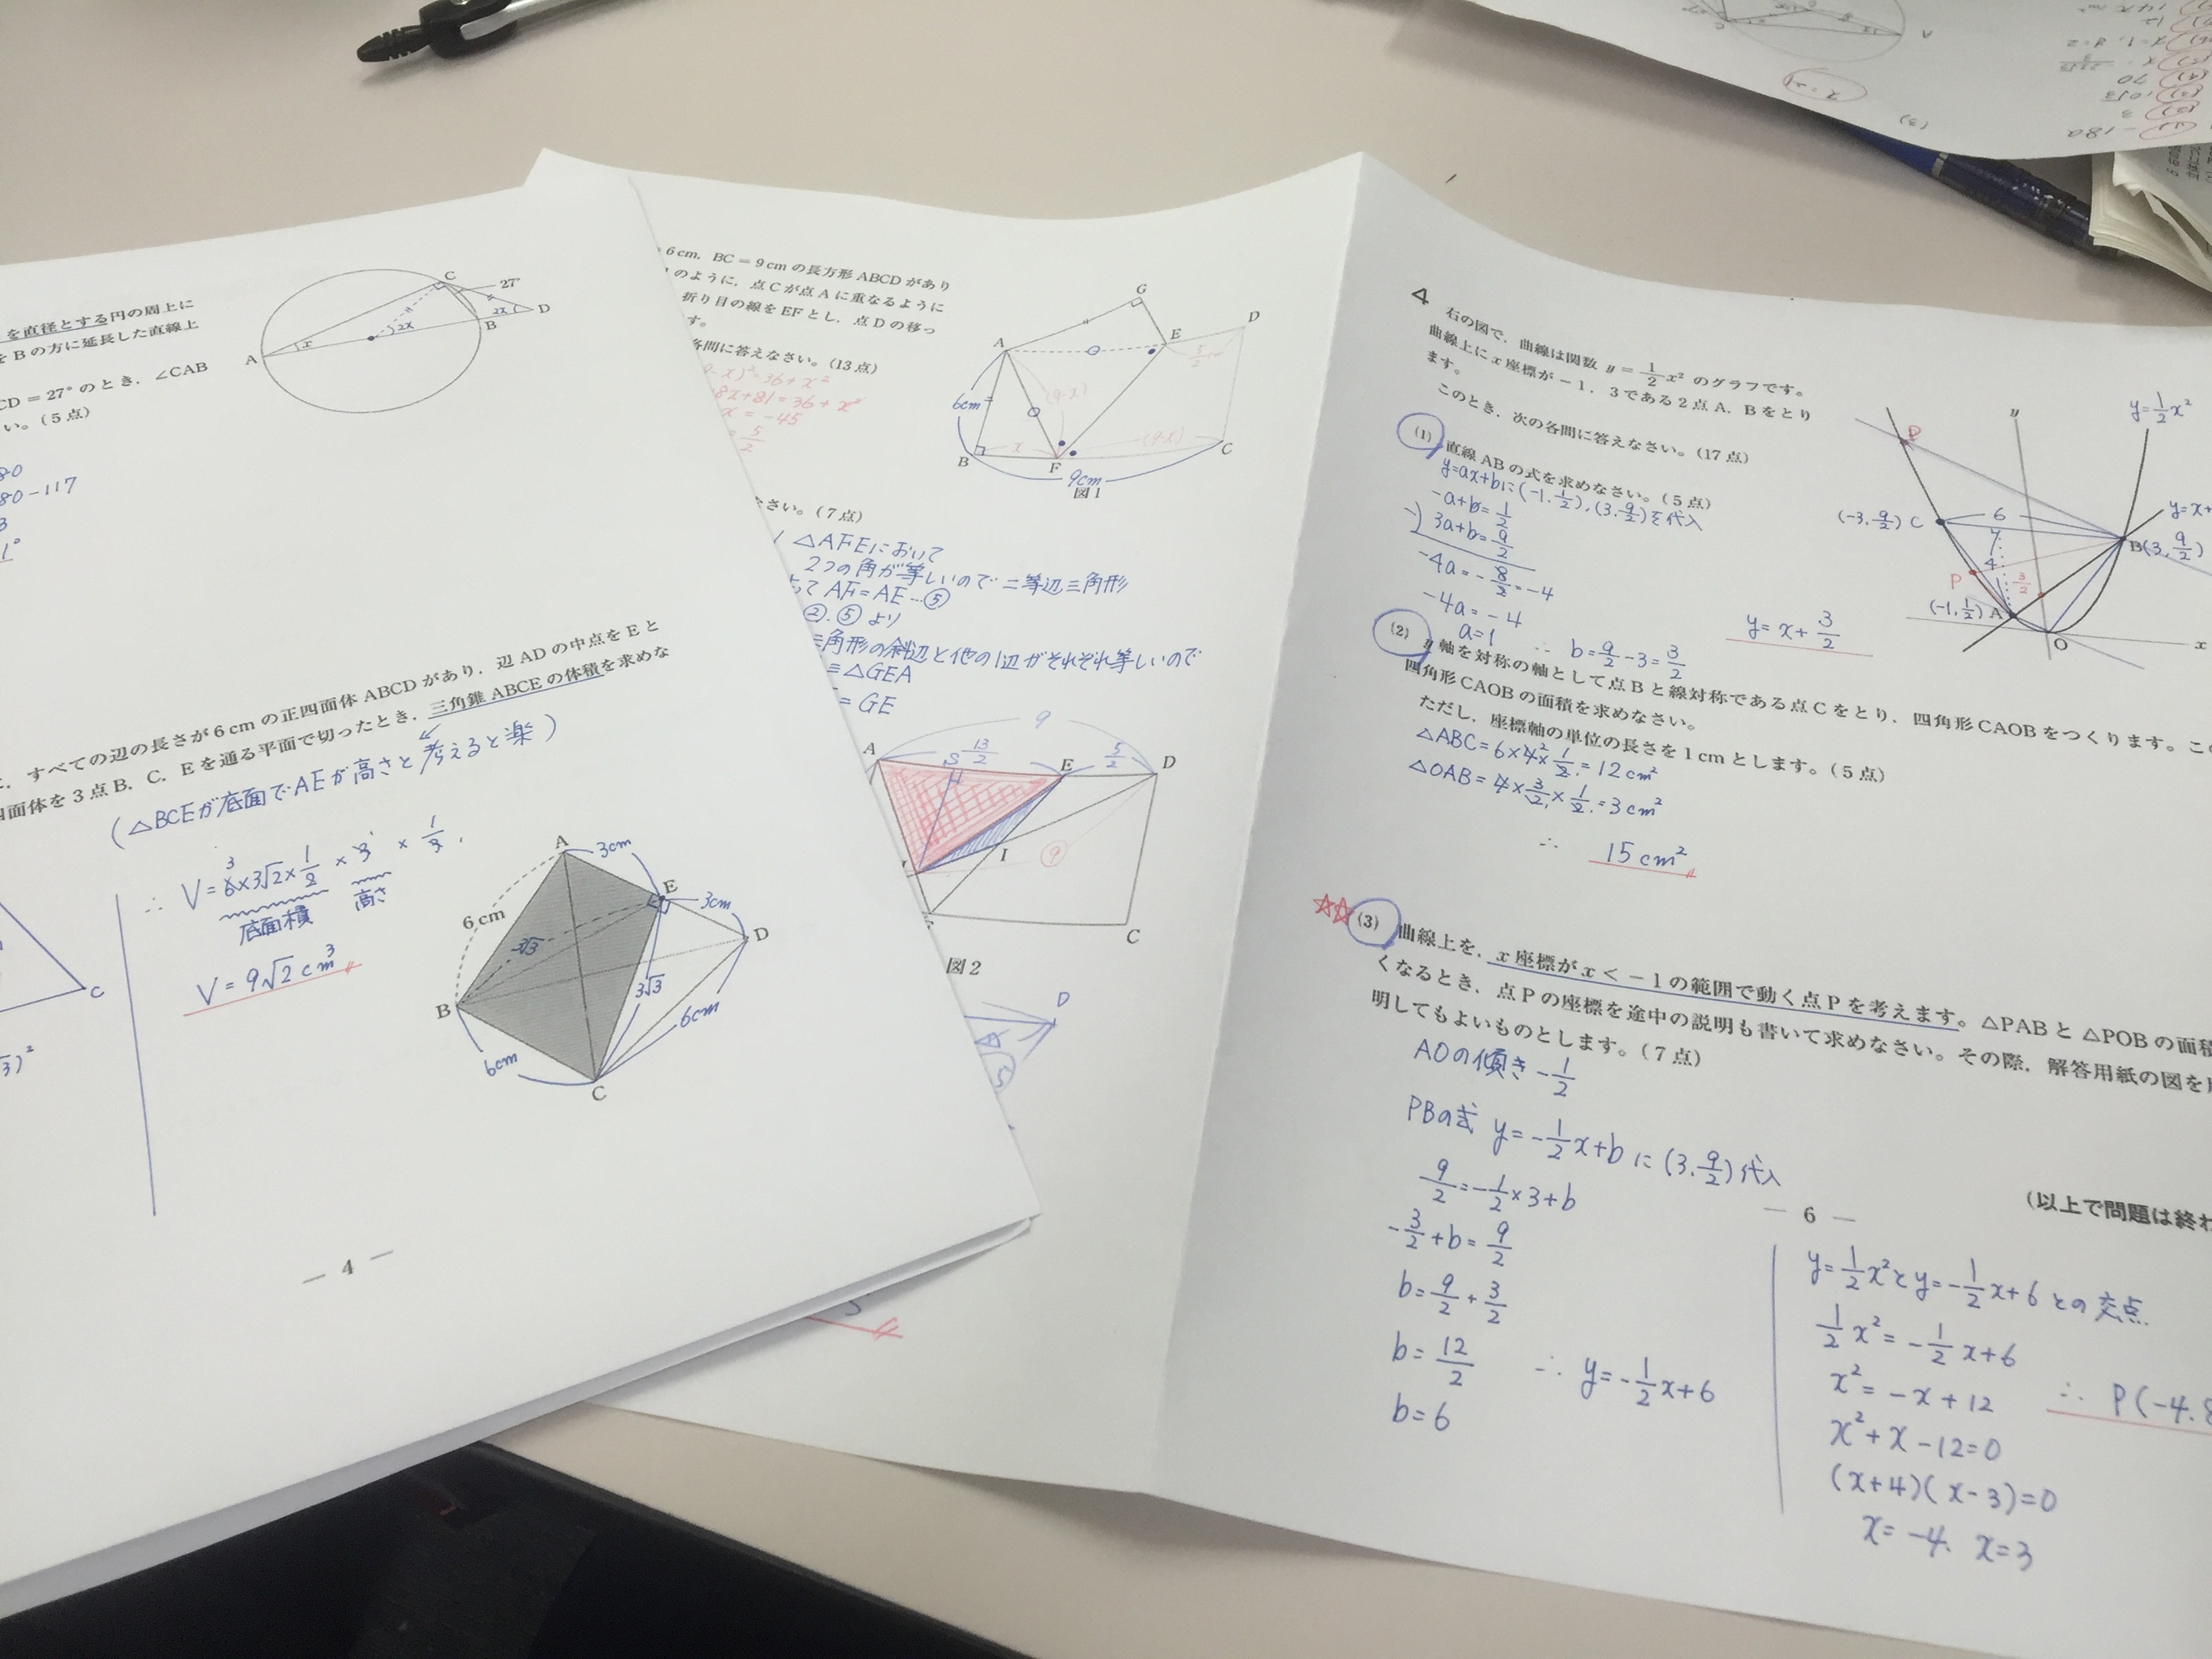 を直径とする円の周上に
をBの方に延長した直線上
CD = 27°のとき，∠CAB
い。(5点)
A
B
C
D
27°
x
2x
2x
80
80-117
3
1°
すべての辺の長さが6cmの正四面体ABCDがあり，辺ADの中点をEと
四面体を3点B，C，Eを通る平面で切ったとき，三角錐ABCEの体積を求めな
(△BCEが底面でAEが高さと考えると楽)
∴ V=6×3√2×1/2×3×1/3
3
底面積
高さ
V=9√2cm³
C
3)²
A
3cm
E
3cm
D
6cm
3√3
3√3
B
6cm
6cm
C
— 4 —
6cm，BC = 9cmの長方形ABCDがあり
のように，点Cが点Aに重なるように
折り目の線をEFとし，点Dの移っ
す。
各問に答えなさい。(13点)
-x)²=36+x²
8x+81=36+x²
x=-45
=5/2
G
A
E
D
5/2
6cm
(9-x)
B
x
F
(9-x)
C
9cm
図1
さい。(7点)
△AFEにおいて
2つの角が等しいので二等辺三角形
よって AF=AE…⑤
②.⑤より
三角形の斜辺と他の1辺がそれぞれ等しいので
≡△GEA
=GE
9
A
13/2
E
5/2
D
H
I
⑨
C
図2
D
4
右の図で，曲線は関数 y = 1/2 x² のグラフです。
曲線上にx座標が−1，3である2点A，Bをとり
ます。
このとき，次の各問に答えなさい。(17点)
(1) 直線ABの式を求めなさい。(5点)
y=ax+bに(-1,1/2),(3,9/2)を代入
-a+b=1/2
-)3a+b=9/2
-4a=-8/2=-4
-4a=-4
a=1
∴ b=9/2-3=3/2
y=x+3/2
y
y=1/2x²
P
(-3,9/2) C
6
y=x+
B(3,9/2)
4
P
3/2
(-1,1/2) A
O
x
(2) y軸を対称の軸として点Bと線対称である点Cをとり，四角形CAOBをつくります。こ
四角形CAOBの面積を求めなさい。
ただし，座標軸の単位の長さを1cmとします。(5点)
△ABC=6×4×1/2=12cm²
△OAB=4×3/2×1/2=3cm²
∴ 15cm²
☆☆(3) 曲線上を，x座標がx < −1の範囲で動く点Pを考えます。△PABと△POBの面積
くなるとき，点Pの座標を途中の説明も書いて求めなさい。その際，解答用紙の図を
明してもよいものとします。(7点)
AOの傾き -1/2
PBの式 y=-1/2x+bに(3,9/2)代入
9/2=-1/2×3+b
-3/2+b=9/2
b=9/2+3/2
b=12/2
b=6
∴ y=-1/2x+6
— 6 —
(以上で問題は終わ
y=1/2x²とy=-1/2x+6との交点
1/2x²=-1/2x+6
x²=-x+12
x²+x-12=0
(x+4)(x-3)=0
x=-4, x=3
∴ P(-4,8